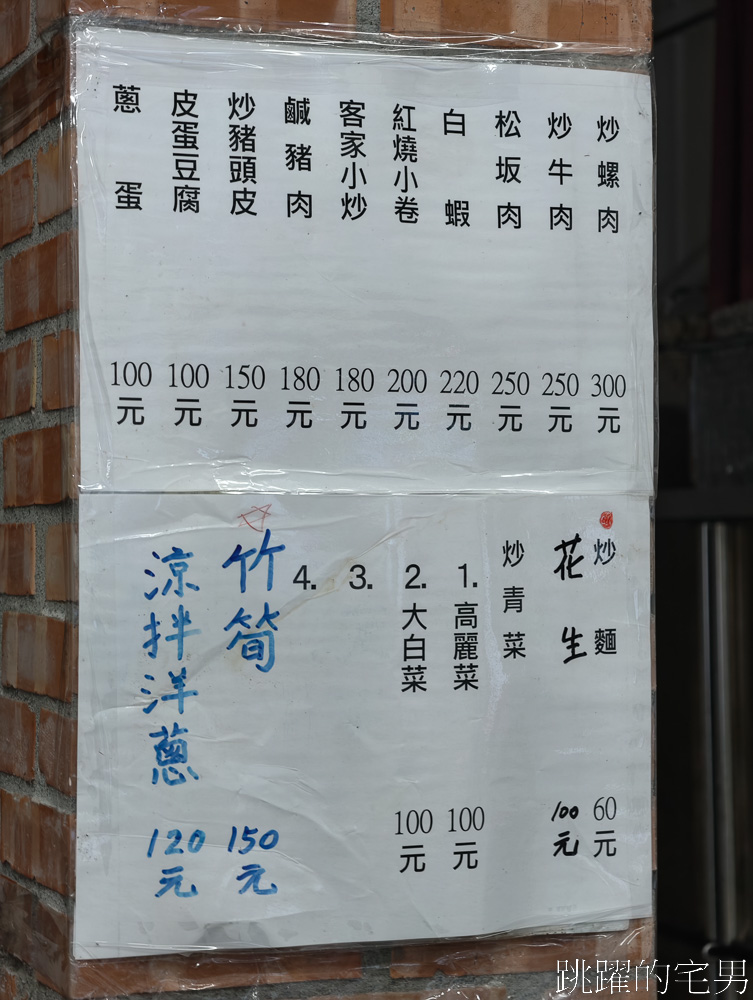 炒螺肉 300元
炒牛肉 250元
松坂肉 250元
白蝦 220元
紅燒小卷 200元
客家小炒 180元
鹹豬肉 180元
炒豬頭皮 150元
皮蛋豆腐 100元
蔥蛋 100元
炒麵 60元
花生 100元
炒青菜
1.高麗菜 100元
2.大白菜 100元
3.
4.
竹筍 150元
涼拌洋蔥 120元
跳躍的宅男